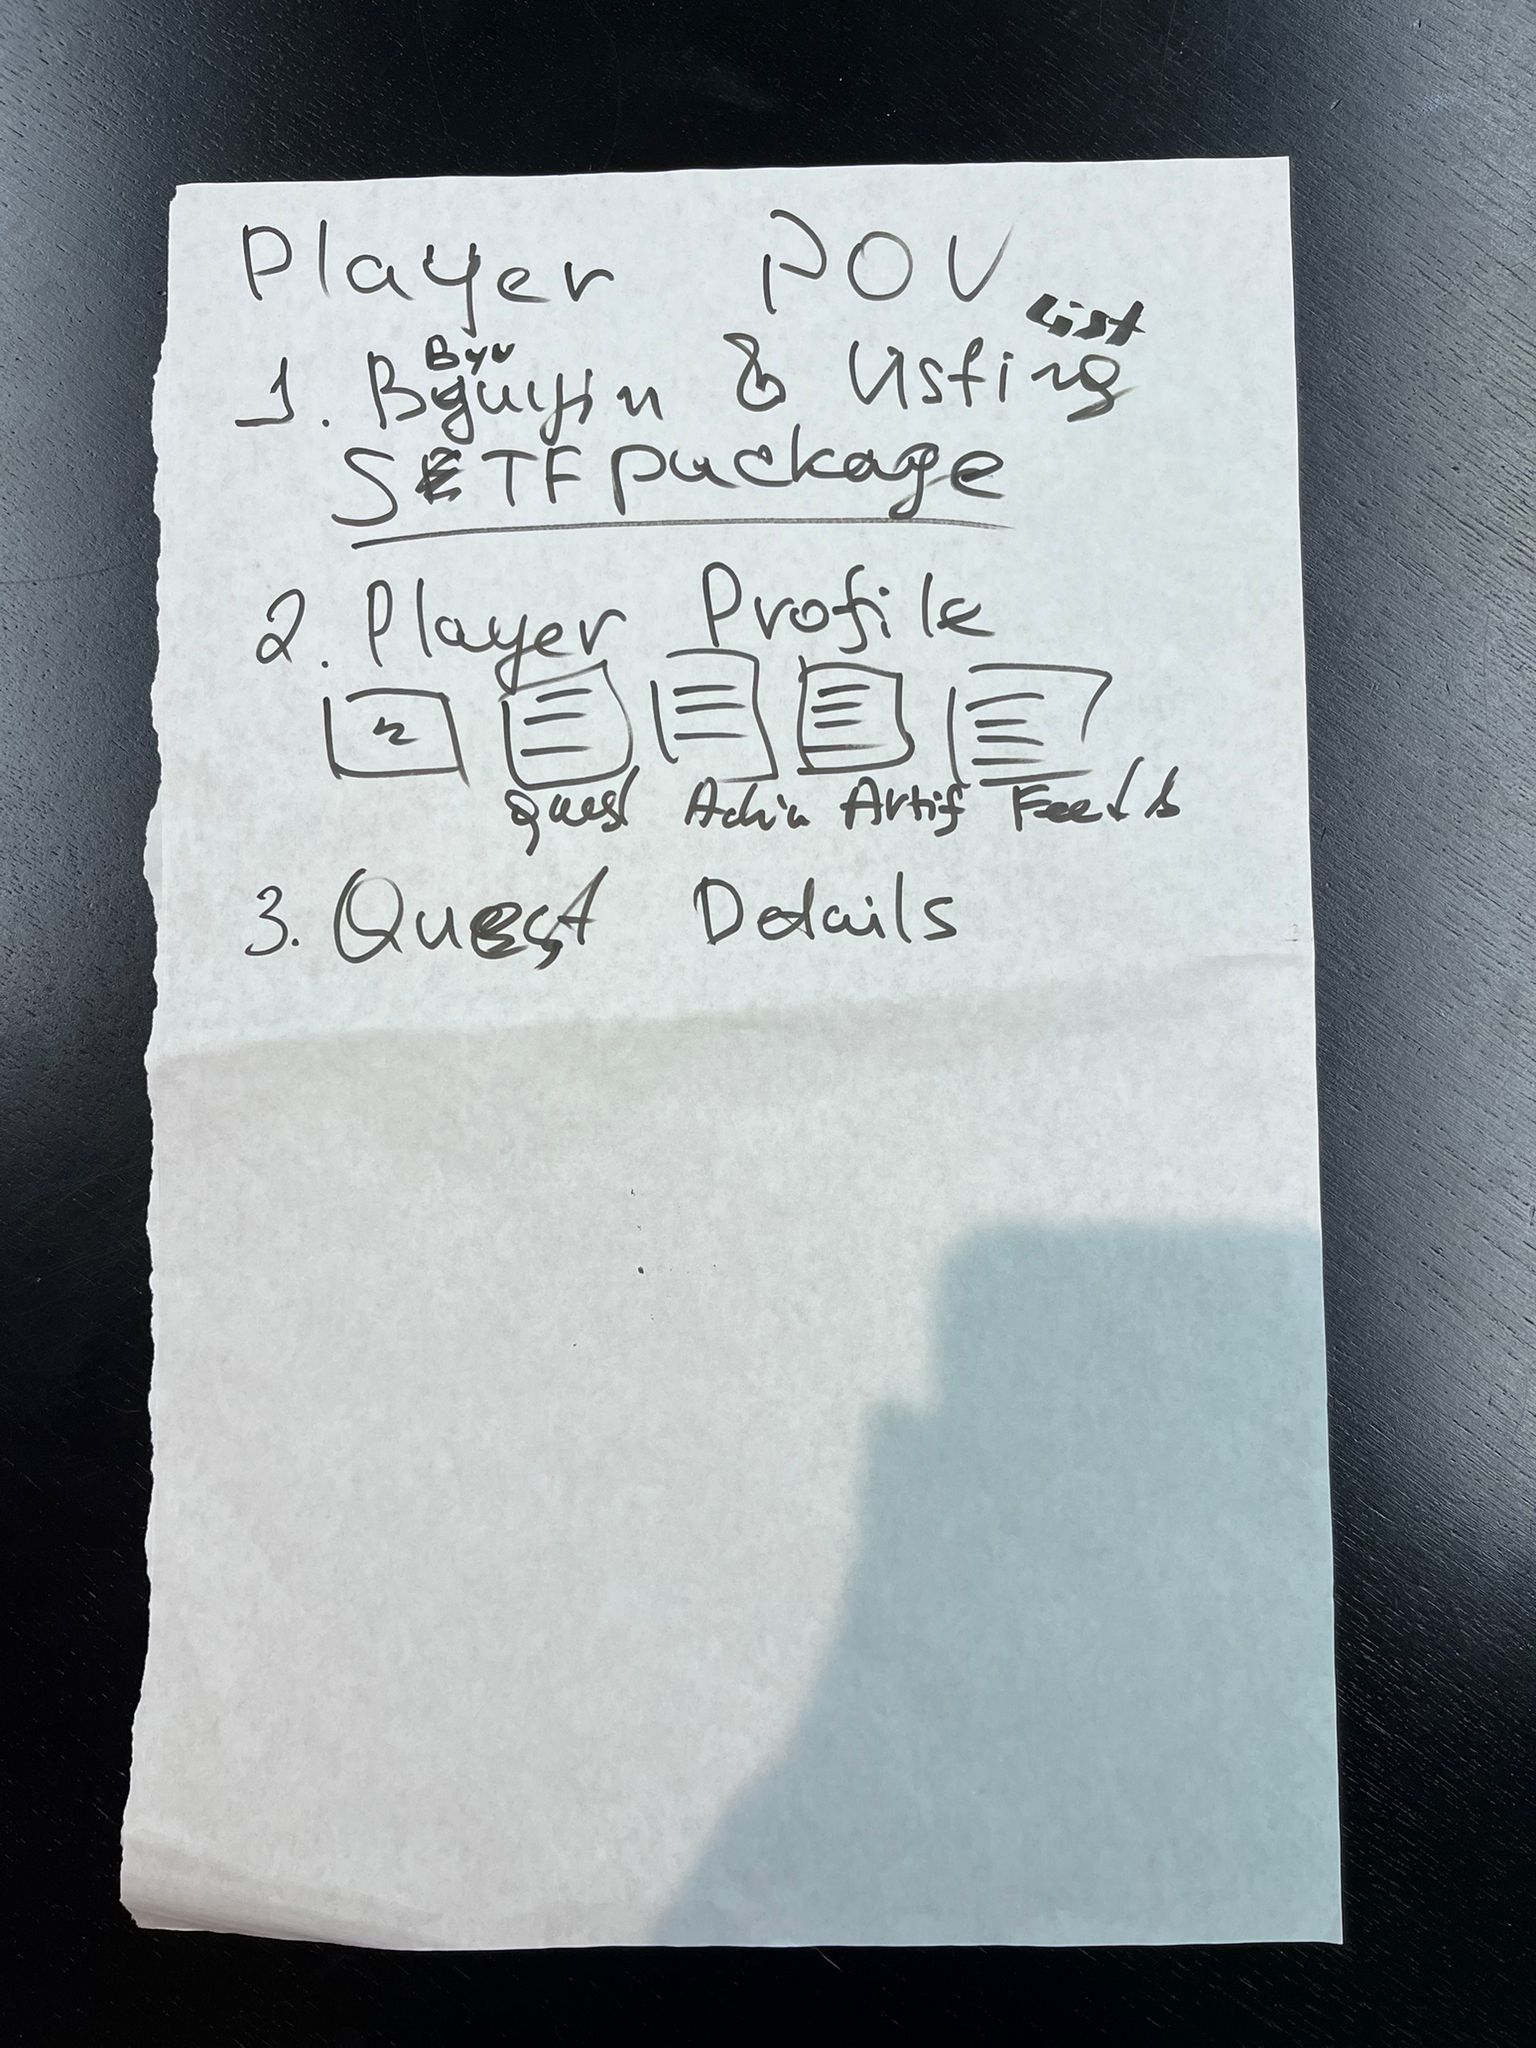 Player POV
List
Byu
1. Bguyin & Listing
SETF package
2. Player Profile
Quest Achiv Artif Feeds
3. Quest Details